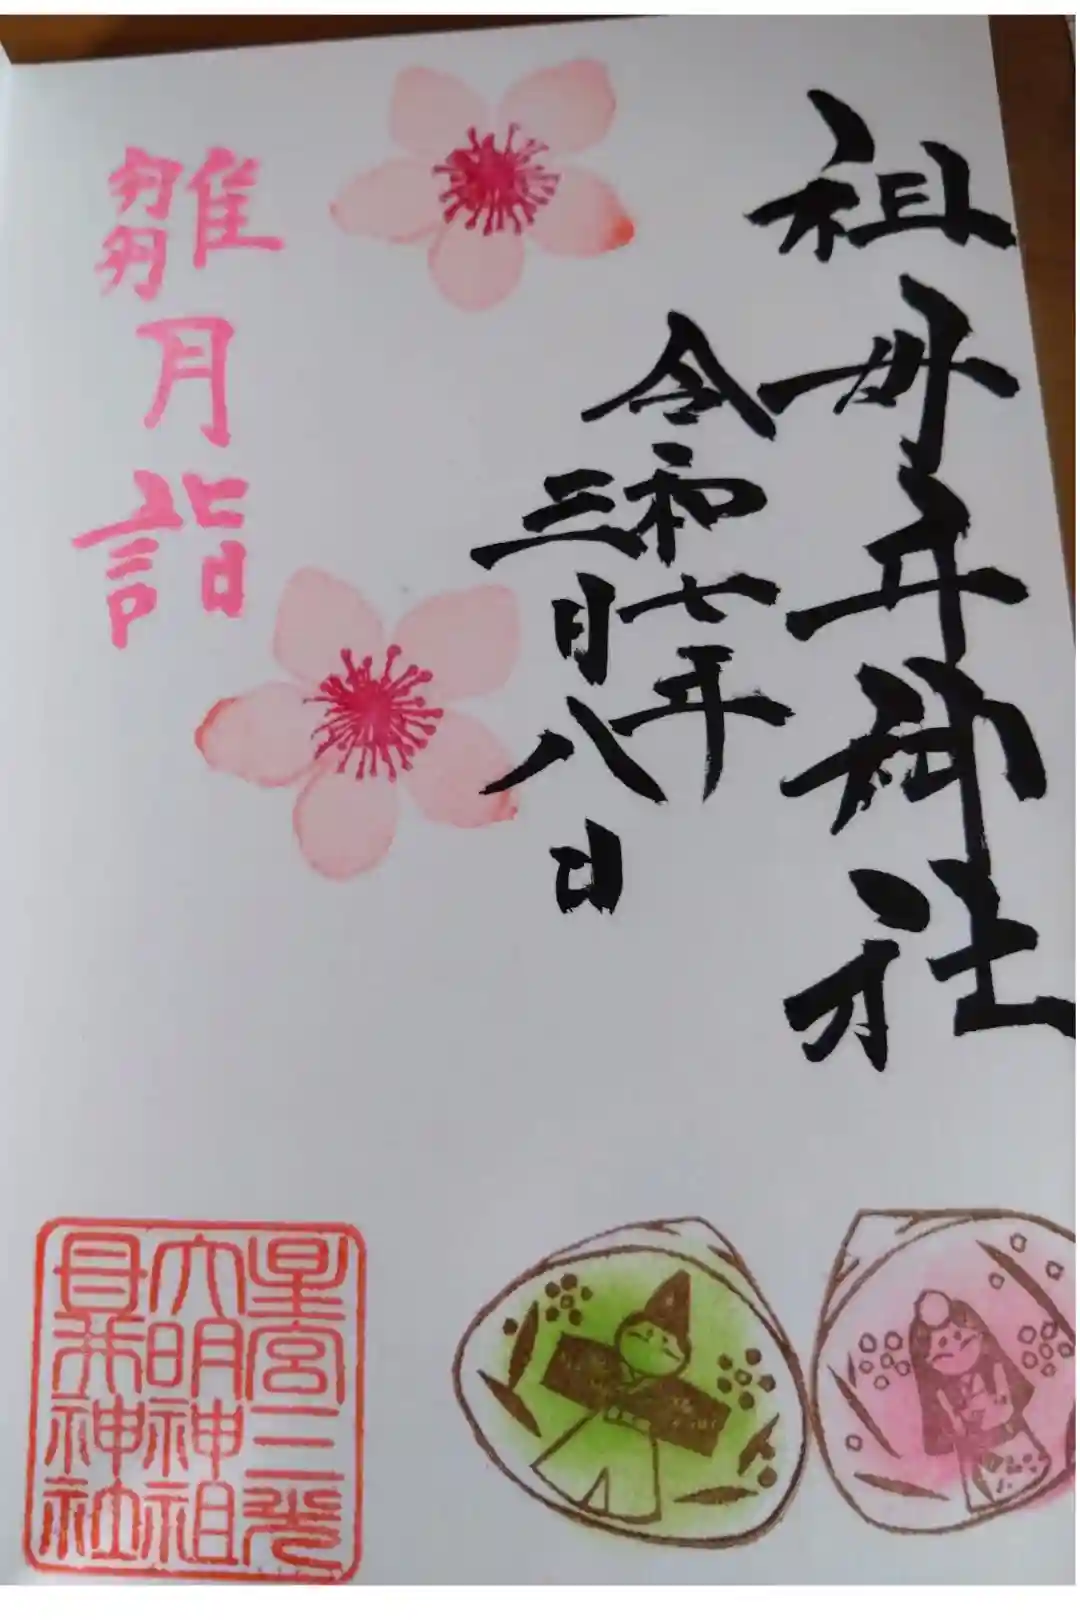 祖母井神社
令和七年
三月八日
雛月詣
星宮二荒
大明神祖
母井神社